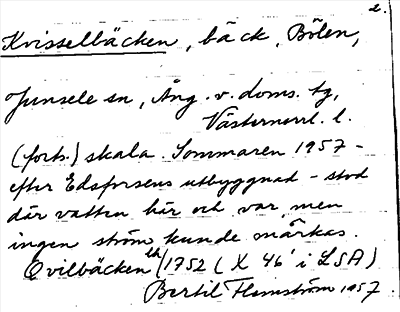 2.
Kvisselbäcken, bäck, Bölen,
Junsele sn, Ång. v. doms. tg,
Västernorrl. l.
(forts.) skala. Sommaren 1957 -
efter Edsforsens utbyggnad - stod
där vatten här och var, men
ingen ström kunde märkas.
Qvilbäcken 1752 (X 46' i LSA)
Bertil Flemström 1957.